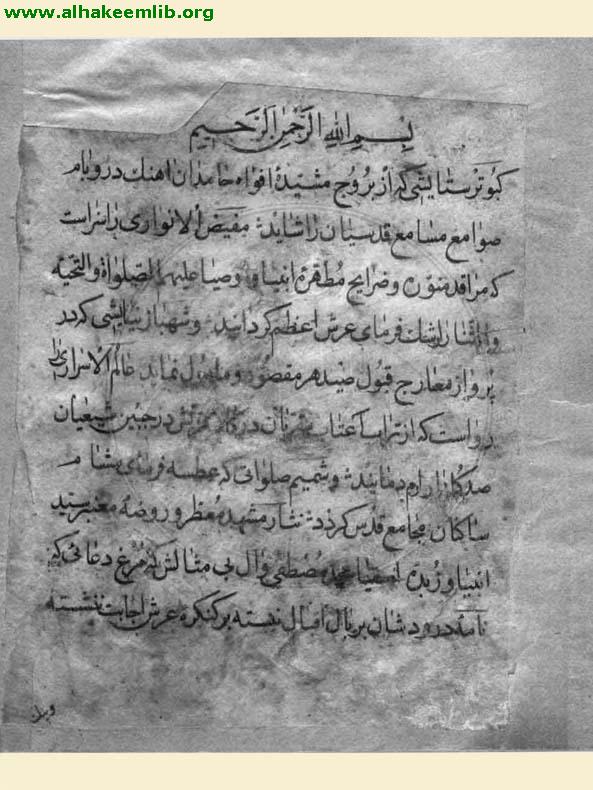 www.alhakeemlib.org
بسم الله الرحمن الرحيم
كبوتر ستايشى كه از بروج مشيدهٔ افواه حامدان اهنك در و بام
صوامع مسامع قدسيان را شايد مفيض الانوارى را سزاست
كه مراقد منوره و ضرايح مطهرهٔ انبيا و وصيا عليهم الصلواة والتحية
والثنا را رشك فرماى عرش اعظم كردانيد و شهباز نيايشى كه در
پرواز معارج قبول صيد هر مقصود و مامول نمايد عالم الاسرارى را
رواست كه از تراب در جبين شيعيان
صد كلزار ارم دمانيد و شميم صلواتى كه عطسه فرماى مشام
ساكنان مجامع قدس كردد نثار مشهد معطر و روضه معنبر سيد
انبيا و زبدهٔ اصفيا محمد مصطفى وال بى مثالش كه مرغ دعائى كه
نامه درود شان بر بال اقبال نبسته بر كنكرهٔ عرش اجابت ننشسته